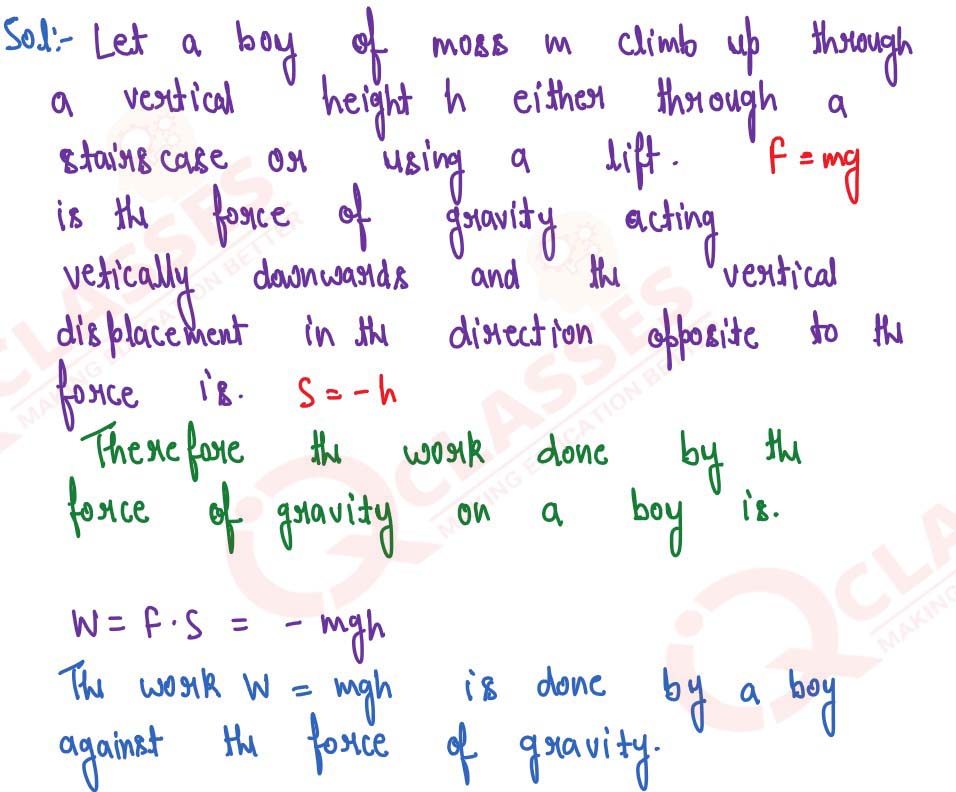 Sol:- Let a boy of moss m climb up through
a vertical height h either through a
stairscase or using a lift. F = mg
is the force of gravity acting
vetically downwards and the vertical
displacement in the direction opposite to the
force is. S = -h
Therefore the work done by the
force of gravity on a boy is.
W = F·S = - mgh
The work W = mgh is done by a boy
against the force of gravity.
CLASSES
MAKING EDUCATION BETTER
IQ CLASSES
MAKING EDUCATION BETTER
IQ CLA
MAKING